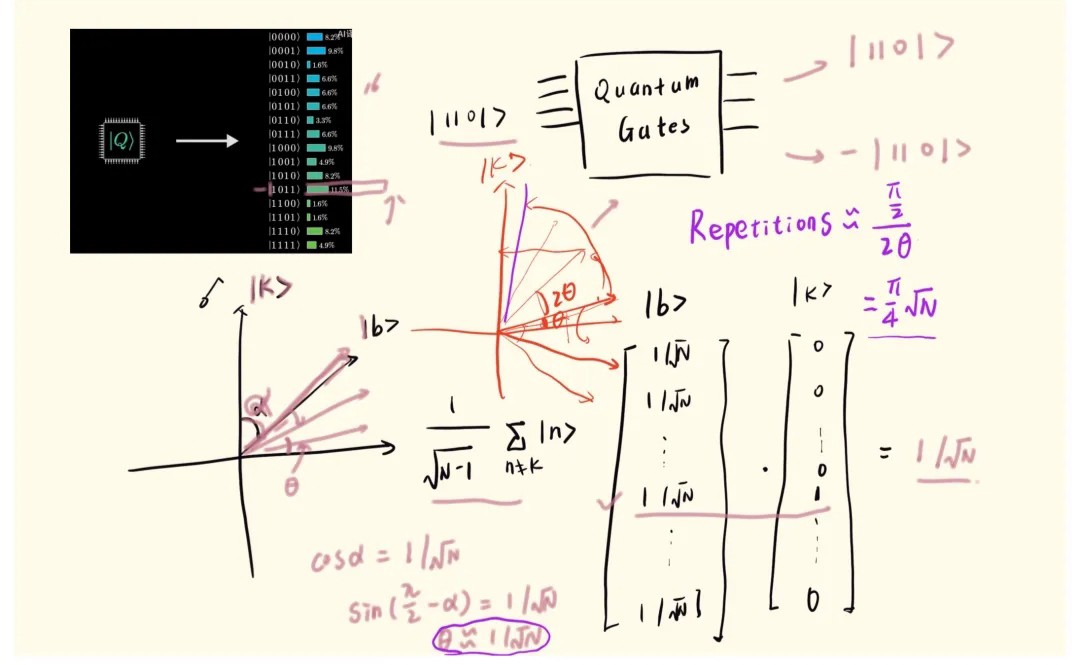 |Q⟩
|0000⟩ 8.2%
|0001⟩ 9.8%
|0010⟩ 1.6%
|0011⟩ 6.6%
|0100⟩ 6.6%
|0101⟩ 6.6%
|0110⟩ 3.3%
|0111⟩ 6.6%
|1000⟩ 9.8%
|1001⟩ 4.9%
|1010⟩ 8.2%
|1011⟩ 11.5%
|1100⟩ 1.6%
|1101⟩ 1.6%
|1110⟩ 8.2%
|1111⟩ 4.9%
16
|1101>
Quantum
Gates
|1101>
-|1101>
|K>
2θ
θ
Repetitions ≈ π/2 / 2θ
= π/4 √N
|K>
|b>
α
θ
1/√N-1 Σ n≠k |n>
cosα = 1/√N
sin(π/2 -α) = 1/√N
θ ≈ 1/√N
|b>
|K>
1/√N 0
1/√N 0
⋮
0
1/√N 1
⋮
1/√N 0
· = 1/√N